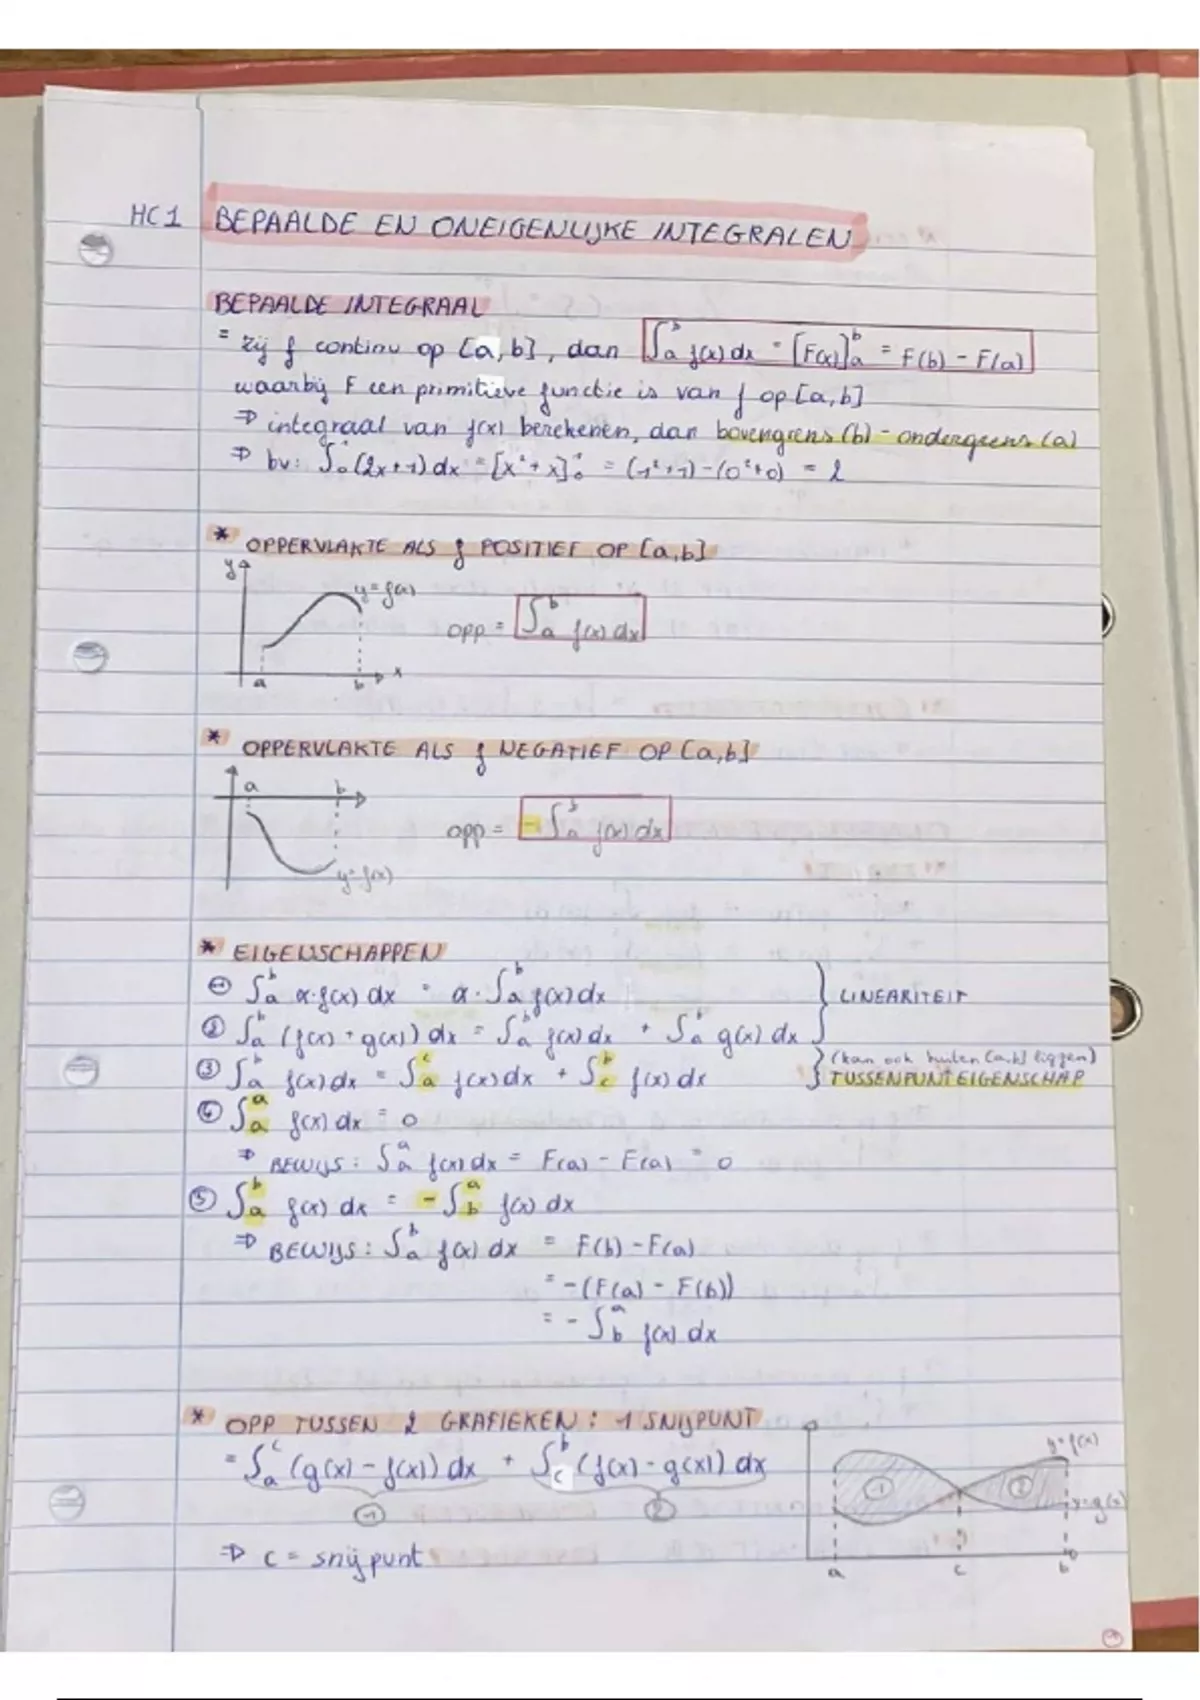 HC1 BEPAALDE EN ONEIGENLIJKE INTEGRALEN
BEPAALDE INTEGRAAL
= Zij f continu op [a,b], dan ∫_a^b f(x) dx = [F(x)]_a^b = F(b) - F(a)
waarbij F een primitieve functie is van f op [a,b]
⇒ integraal van f(x) berekenen, dan bovengrens (b) - ondergrens (a)
⇒ bv: ∫_0^1 (2x+1) dx = [x² + x]_0^1 = (1²+1) - (0²+0) = 2
* OPPERVLAKTE ALS f POSITIEF OP [a,b]
y
y = f(x)
opp = ∫_a^b f(x) dx
a b x
* OPPERVLAKTE ALS f NEGATIEF OP [a,b]
a b
opp = - ∫_a^b f(x) dx
y = f(x)
* EIGENSCHAPPEN
① ∫_a^b α·f(x) dx = α·∫_a^b f(x) dx } LINEARITEIT
② ∫_a^b (f(x) + g(x)) dx = ∫_a^b f(x) dx + ∫_a^b g(x) dx
③ ∫_a^b f(x) dx = ∫_a^c f(x) dx + ∫_c^b f(x) dx } (kan ook buiten [a,b] liggen)
TUSSENPUNTEIGENSCHAP
④ ∫_a^a f(x) dx = 0
⇒ BEWIJS: ∫_a^a f(x) dx = F(a) - F(a) = 0
⑤ ∫_a^b f(x) dx = - ∫_b^a f(x) dx
⇒ BEWIJS: ∫_a^b f(x) dx = F(b) - F(a)
= -(F(a) - F(b))
= - ∫_b^a f(x) dx
* OPP TUSSEN 2 GRAFIEKEN: 1 SNIJPUNT
= ∫_a^c (g(x) - f(x)) dx + ∫_c^b (f(x) - g(x)) dx
① ②
⇒ c = snijpunt
y = f(x)
① ②
y = g(x)
a c b
1